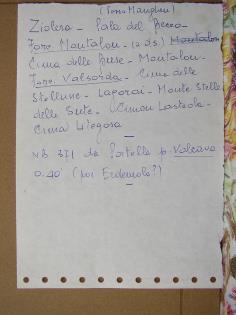 (Passo Manghen)
Ziolera - Pala del Becco -
Forc. Montalon - (2 ds.) Montalon
Cima delle Buse - Montalon -
Forc. Valsorda - Cima delle
Stellune - Lagorai - Monte Stelle
delle Sute - Cimon Lasteola -
Cima Liegosa -
NB 371 da Portella p. Valcava
0.40' (poi Erdemolo?)